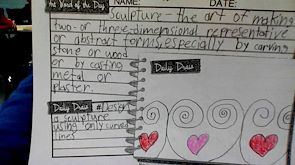 the Word of the Day
NAME:
DATE:
Sculpture - the art of making
two- or three-dimensional representative
or abstract forms, especially by carving
stone or wood
or by casting
metal or
plaster.
Daily Draw
Daily Draw #design
a sculpture
using only curved
lines